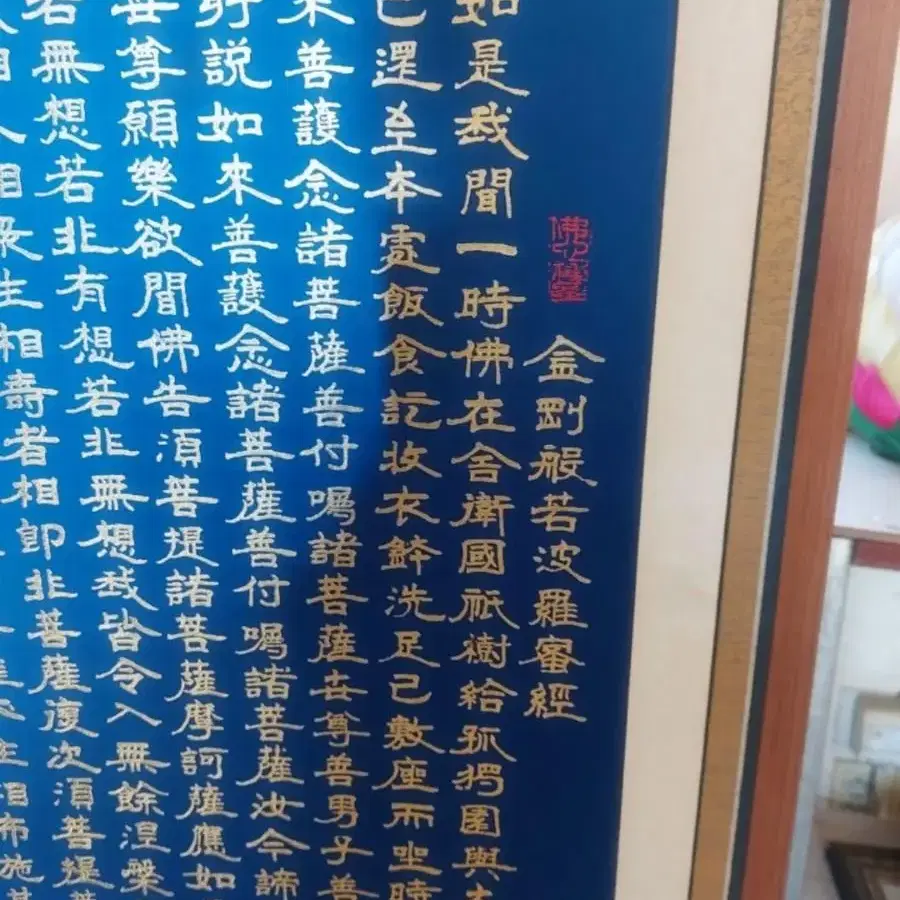 金剛般若波羅蜜經
如是我聞一時佛在舍衛國祇樹給孤獨園與大
已還至本處飯食訖收衣鉢洗足已敷座而坐時
來善護念諸菩薩善付囑諸菩薩世尊善男子善
所說如來善護念諸菩薩善付囑諸菩薩汝今諦
世尊願樂欲聞佛告須菩提諸菩薩摩訶薩應如
若無想若非有想若非無想我皆令入無餘涅槃
相人相眾生相壽者相即非菩薩復次須菩提菩
住相布施其